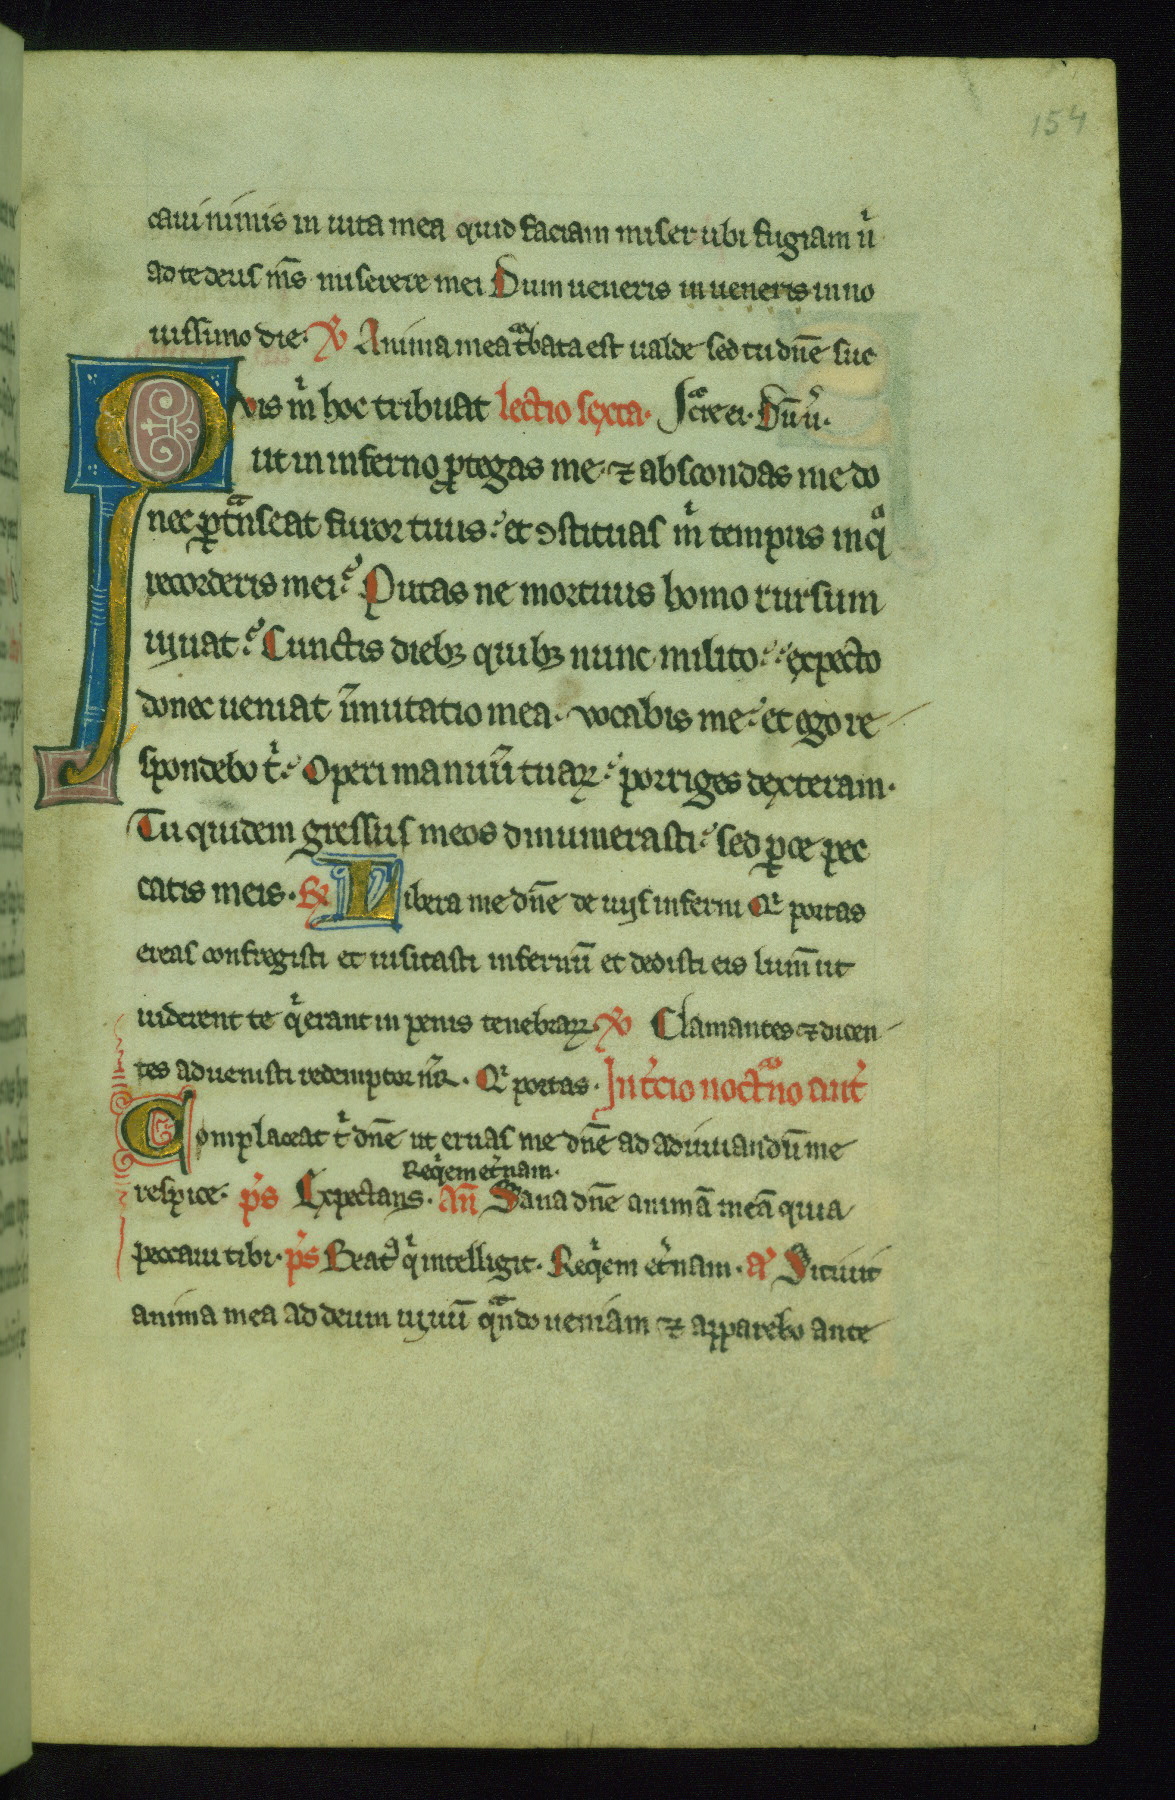 154
caui nimis in uita mea quid faciam miser ubi fugiam ń
ad te deus m̄s miserere mei Dum ueneris in ueneris in no
uissimo die. ℣ Anima mea tͣbata est ualde sed tu dn̄e suc
Quis mͥ hoc tribuat lectio sexta.
ut in inferno ꝓtegas me. ⁊ abscondas me do
nec ꝑtͣnseat furor tuus. et ꝯstituas mͥ tempus in qͣ
recorderis mei. Putas ne mortuus homo rursum
uiuat. Cunctis diebꝫ quibꝫ nunc milito. expecto
donec ueniat īmutatio mea. vocabis me. et ego re
spondebo tͥ. Operi manuū tuaꝝ. porriges dexteram.
Tu quidem gressus meos dinumerasti. sed ꝑce pec
catis meis. ℟ Libera me dn̄e de uijs inferni Qͥ portas
ereas confregisti et uisitasti infernū et dedisti eis lum̄ ut
uiderent te qͥ erant in penis tenebraꝝ. ℣ Clamantes ⁊ dicen
tes aduenisti redemptor nr̄. Qͥ portas. In t̉cio noctͬno ant̉
Complaceat tͥ dn̄e ut eruas me dn̄e ad adiuuandū me
Reqͥem et̉nam.
respice. p̄s Expectans. an̄ Sana dn̄e animā meā quia
peccaui tibi. p̄s Beatꝰ qͥ intelligit. Reqͥem et̉nam. a̓ Sitiuit
anima mea ad deum uiuū qͣndo ueniam ⁊ apparebo ante